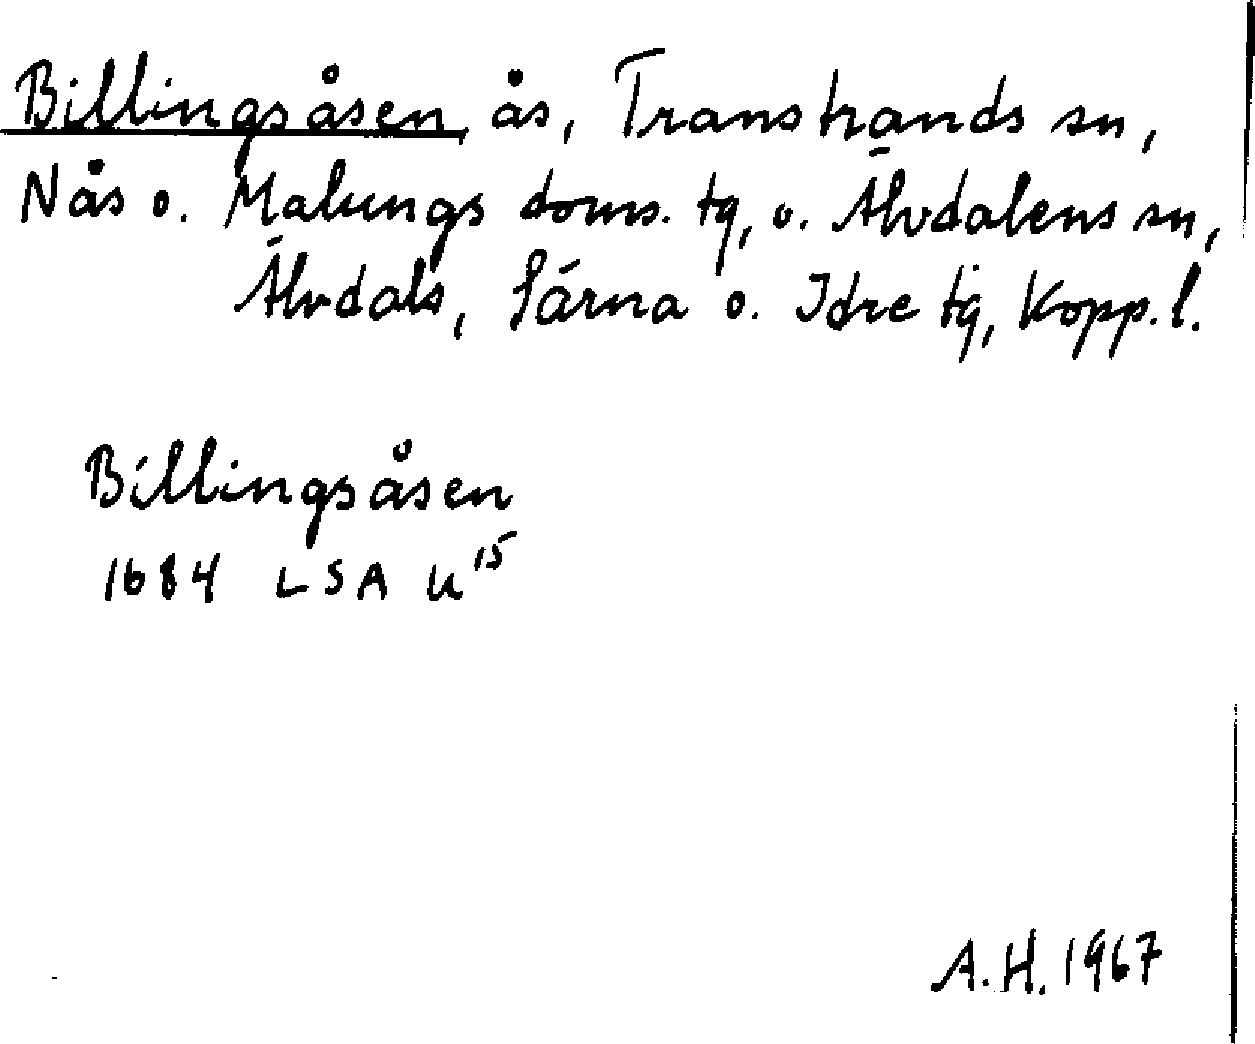 Billingsåsen, ås, Transtrands sn,
Nås o. Malungs doms. tg, o. Älvdalens sn,
Älvdals, Särna o. Idre tg, Kopp. l.
Billingsåsen
1684 LSA U¹⁵
A.H. 1967